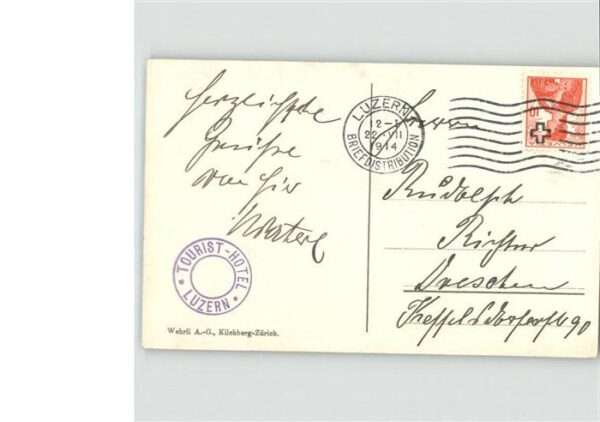 Herzlichste
Grüße
von hier
LUZERN
12-1
22. VII
1914
BRIEFDISTRIBUTION
10
Herrn
Rudolph
Richter
Dresden
Kesselsdorferstr 90
* TOURIST-HOTEL *
LUZERN
Wehrli A.-G., Kilchberg-Zürich.